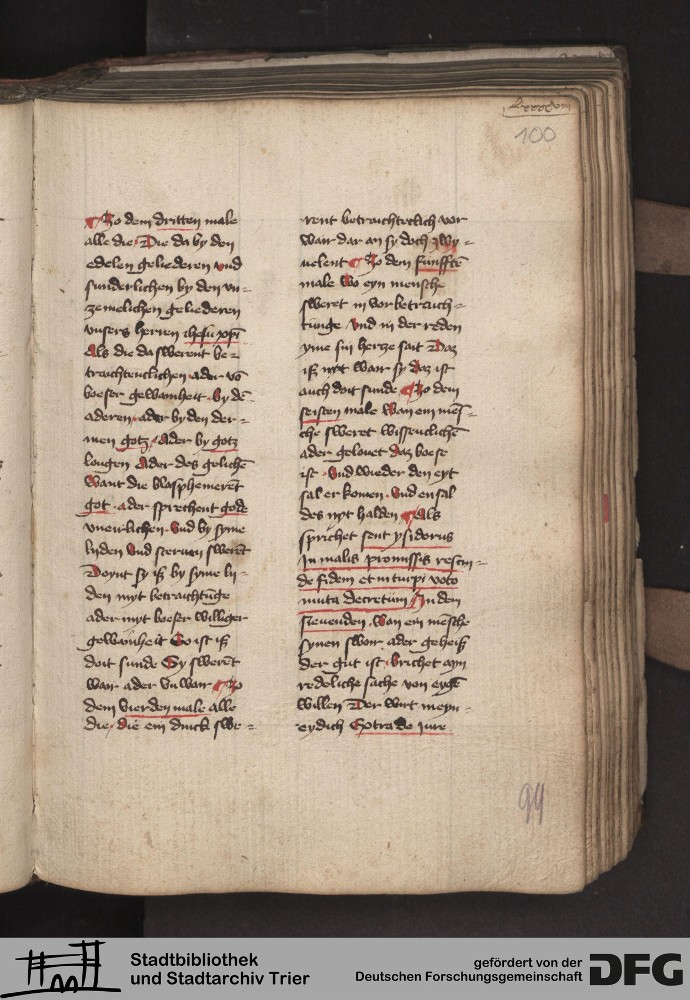 lxxxxviii
100
Zo dem dritten male
alle die Die da by den
edelen geliederen vnd
sunderlichen by den vn-
zemelichen geliederen
vnsers herren ihesu xpi
Als die da swerent be-
traichtenclichen ader vō
boeser gewanheit by dē
aderen ader by den der-
men gotz Ader by gotz
longen Ader des gelichē
Want die blasphemerēt
got ader sprechent gode
vneirlichen Vnd by syme
lyden Vnd steruen swerēt
Doynt sy iß by syme ly-
den myt betraichtūge
ader myt boeser williger
gewanheit So ist iß
doit sunde Sy swerēt
wair ader vn wair Zo
dem vierden male alle
die die ein druck swe-
rent betraichteclich vor
wair dar an sy doch zwy-
uelent Zo dem funfftē
male Wo eyn mensche
sweret in vorbetraich-
tunge Vnd in der reden
yme sin hertze sait Daz
iß nyt wair sy daz ist
auch doit sunde Zo dem
seisten male Wan ein mēs-
che sweret wissenclichē
ader gelouet daz boese
ist Vnd wieder den eyt
sal er komen Vnd en sal
des nyt halden Als
sprichet sent ysidorus
In malis promissis rescin-
de fidem et in turpi voto
muta decretum In dem
sieuenden Wan ein mēsche
synen swoir ader geheiß
der gut ist brichet ayn
redeliche sache von eygē
willen Der wirt meyn-
eydich Extra de iure
99
Stadtbibliothek
und Stadtarchiv Trier
gefördert von der
Deutschen Forschungsgemeinschaft
DFG